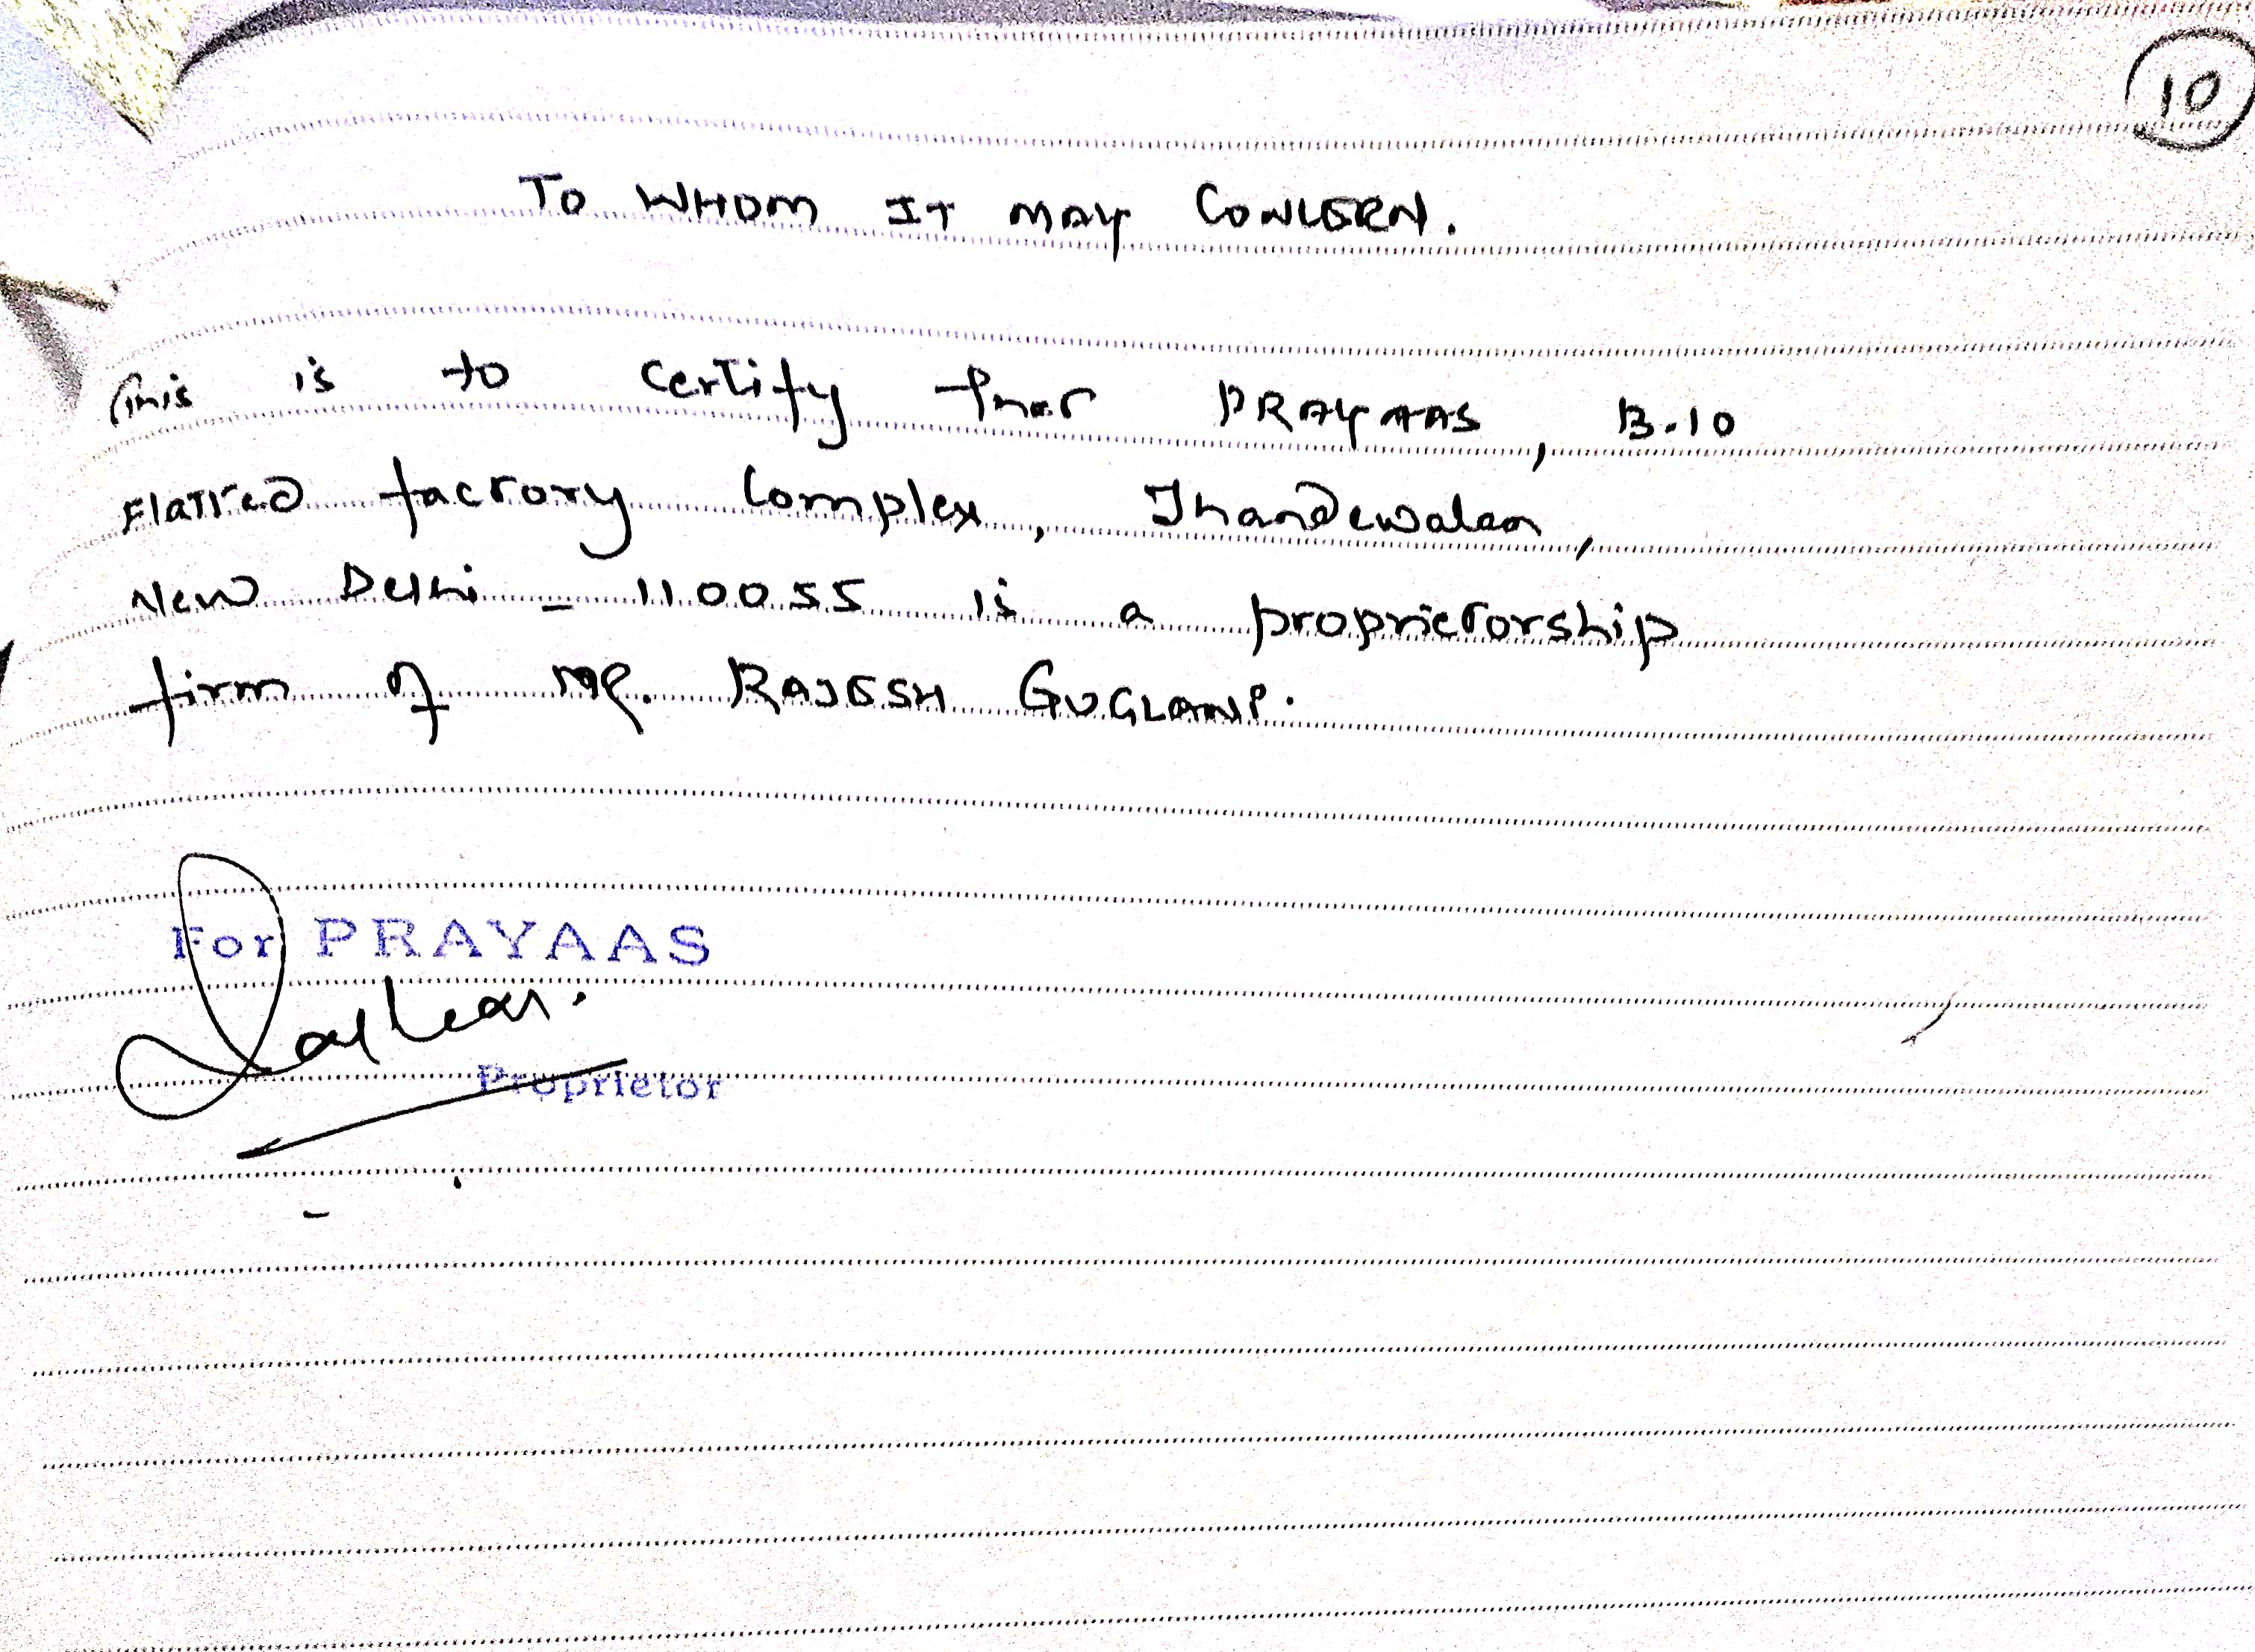 10
TO WHOM IT MAY CONCERN.
This is to certify that PRAYAAS, B-10
Flatted factory Complex, Jhandewalan,
New Delhi - 110055 is a proprietorship
firm of MR. RAJESH GUGLANI.
For PRAYAAS
Proprietor